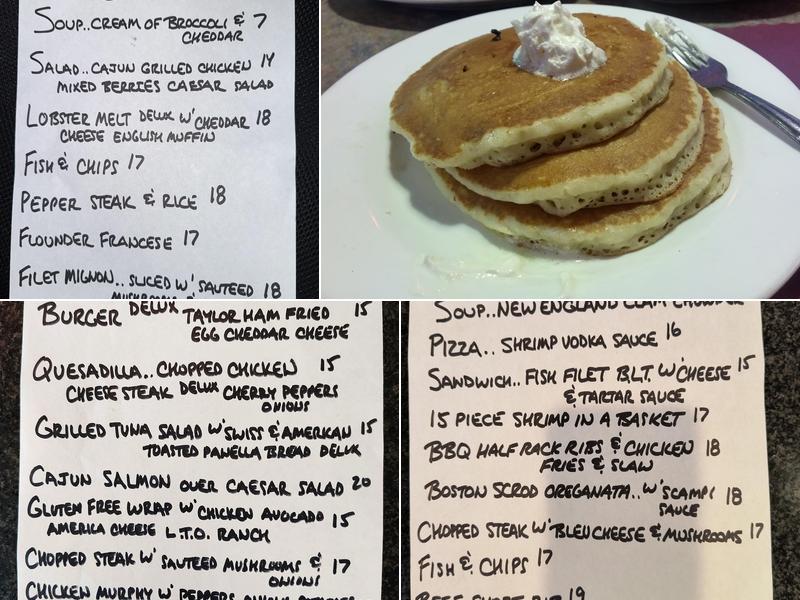 SOUP..CREAM OF BROCCOLI & 7
CHEDDAR
SALAD..CAJUN GRILLED CHICKEN 14
MIXED BERRIES CAESAR SALAD
LOBSTER MELT DELUX W' CHEDDAR 18
CHEESE ENGLISH MUFFIN
FISH & CHIPS 17
PEPPER STEAK & RICE 18
FLOUNDER FRANCESE 17
FILET MIGNON.. SLICED W' SAUTEED 18
MUSHROOMS &
BURGER DELUX TAYLOR HAM FRIED 15
EGG CHEDDAR CHEESE
QUESADILLA..CHOPPED CHICKEN 15
CHEESE STEAK DELUX CHERRY PEPPERS
ONIONS
GRILLED TUNA SALAD W' SWISS & AMERICAN 15
TOASTED PANELLA BREAD DELUX
CAJUN SALMON OVER CAESAR SALAD 20
GLUTEN FREE WRAP W' CHICKEN AVOCADO 15
AMERICA CHEESE L.T.O. RANCH
CHOPPED STEAK W' SAUTEED MUSHROOMS & 17
ONIONS
CHICKEN MURPHY W' PEPPERS
SOUP..NEW ENGLAND CLAM CHOWDER
PIZZA.. SHRIMP VODKA SAUCE 16
SANDWICH.. FISH FILET B.L.T. W' CHEESE 15
& TARTAR SAUCE
15 PIECE SHRIMP IN A BASKET 17
BBQ HALF RACK RIBS & CHICKEN 18
FRIES & SLAW
BOSTON SCROD OREGANATA.. W' SCAMPI 18
SAUCE
CHOPPED STEAK W' BLEU CHEESE & MUSHROOMS 17
FISH & CHIPS 17
BEEF SHORT RIB 19